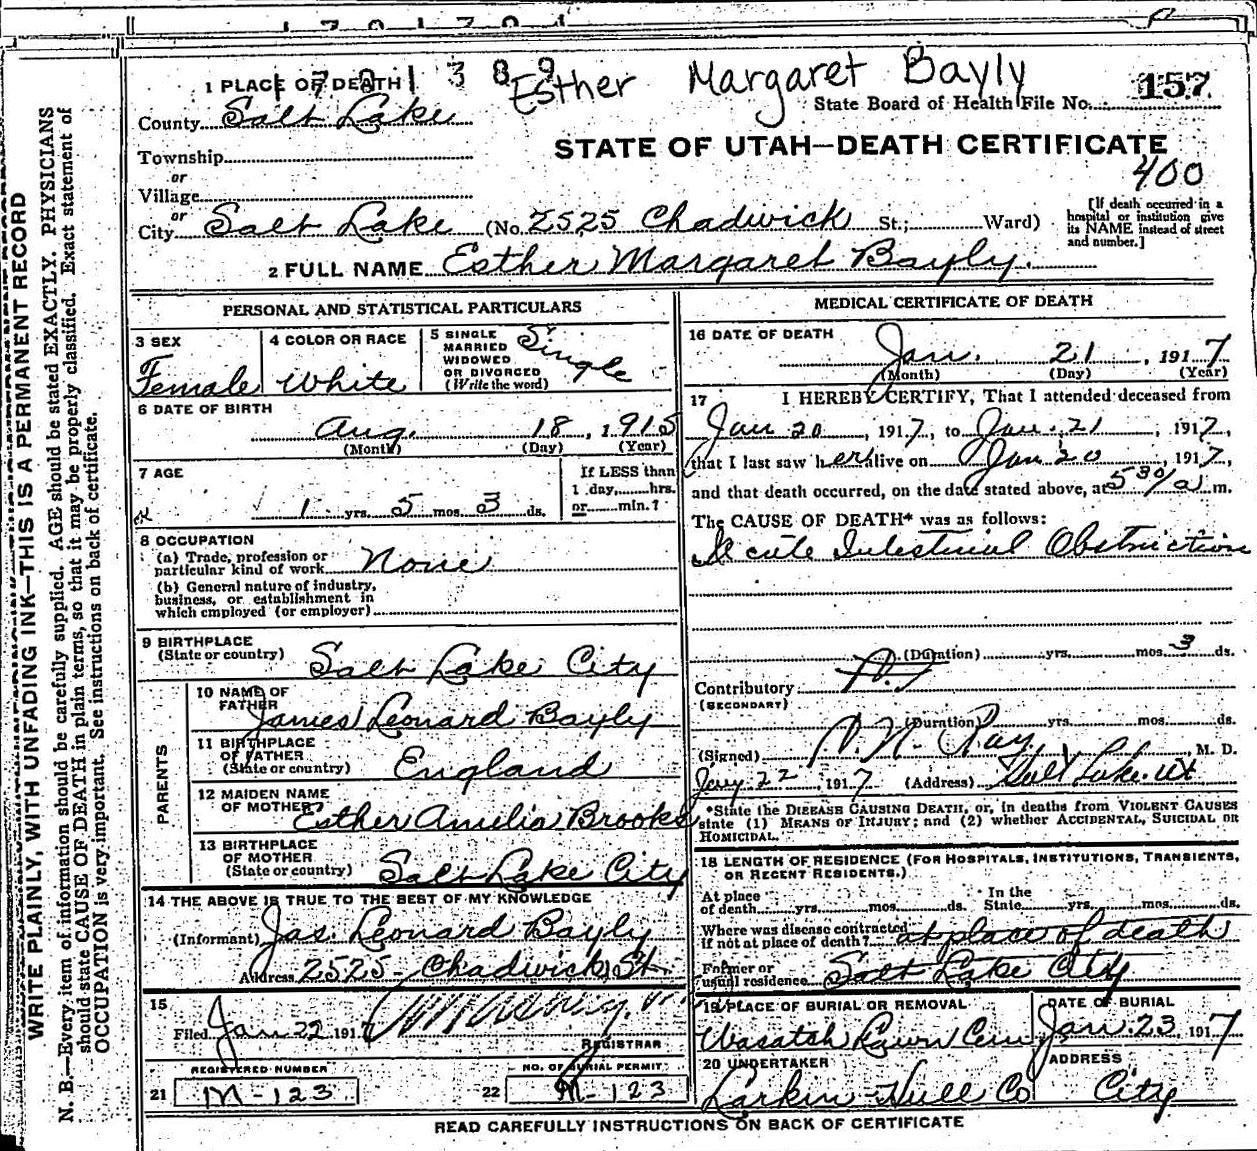 1701389
Esther Margaret Bayly
1 PLACE OF DEATH
State Board of Health File No. 157
County Salt Lake
STATE OF UTAH—DEATH CERTIFICATE
Township
400
or
Village
or
City Salt Lake (No. 2525 Chadwick St.; Ward)
[If death occurred in a
hospital or institution give
its NAME instead of street
and number.]
2 FULL NAME Esther Margaret Bayly.
PERSONAL AND STATISTICAL PARTICULARS
3 SEX
Female
4 COLOR OR RACE
White
5 SINGLE
MARRIED
WIDOWED
OR DIVORCED
(Write the word)
Single
6 DATE OF BIRTH
Aug. 18, 1915
(Month) (Day) (Year)
7 AGE
1 yrs. 5 mos. 3 ds.
If LESS than
1 day, hrs.
or min.?
8 OCCUPATION
(a) Trade, profession or
particular kind of work None
(b) General nature of industry,
business, or establishment in
which employed (or employer)
9 BIRTHPLACE
(State or country) Salt Lake City
PARENTS
10 NAME OF
FATHER
James Leonard Bayly
11 BIRTHPLACE
OF FATHER
(State or country) England
12 MAIDEN NAME
OF MOTHER
Esther Amelia Brooks
13 BIRTHPLACE
OF MOTHER
(State or country) Salt Lake City
14 THE ABOVE IS TRUE TO THE BEST OF MY KNOWLEDGE
(Informant) Jas. Leonard Bayly
Address 2525 Chadwick St.
15
Filed Jan 22 1917
REGISTRAR
REGISTERED NUMBER
21 M-123
NO. OF BURIAL PERMIT
22 M-123
MEDICAL CERTIFICATE OF DEATH
16 DATE OF DEATH
Jan. 21, 1917
(Month) (Day) (Year)
17 I HEREBY CERTIFY, That I attended deceased from
Jan 20, 1917, to Jan. 21, 1917,
that I last saw her alive on Jan 20, 1917,
and that death occurred, on the date stated above, at 5 30/a m.
The CAUSE OF DEATH* was as follows:
Acute Intestinal Obstruction
(Duration) yrs. mos. 3 ds.
Contributory
(SECONDARY)
(Duration) yrs. mos. ds.
(Signed) Ray, M. D.
Jany 22 1917 (Address) Salt Lake Ut
*State the DISEASE CAUSING DEATH, or, in deaths from VIOLENT CAUSES
state (1) MEANS OF INJURY; and (2) whether ACCIDENTAL, SUICIDAL OR
HOMICIDAL.
18 LENGTH OF RESIDENCE (FOR HOSPITALS, INSTITUTIONS, TRANSIENTS,
OR RECENT RESIDENTS.)
At place
of death yrs. mos. ds.
In the
State yrs. mos. ds.
Where was disease contracted
if not at place of death? at place of death
Former or
usual residence Salt Lake City
19 PLACE OF BURIAL OR REMOVAL
Wasatch Lawn Cem
DATE OF BURIAL
Jan. 23 1917
20 UNDERTAKER
Larkin Hull Co
ADDRESS
City
READ CAREFULLY INSTRUCTIONS ON BACK OF CERTIFICATE
WRITE PLAINLY, WITH UNFADING INK—THIS IS A PERMANENT RECORD
N. B.—Every item of information should be carefully supplied. AGE should be stated EXACTLY. PHYSICIANS
should state CAUSE OF DEATH in plain terms, so that it may be properly classified. Exact statement of
OCCUPATION is very important. See instructions on back of certificate.